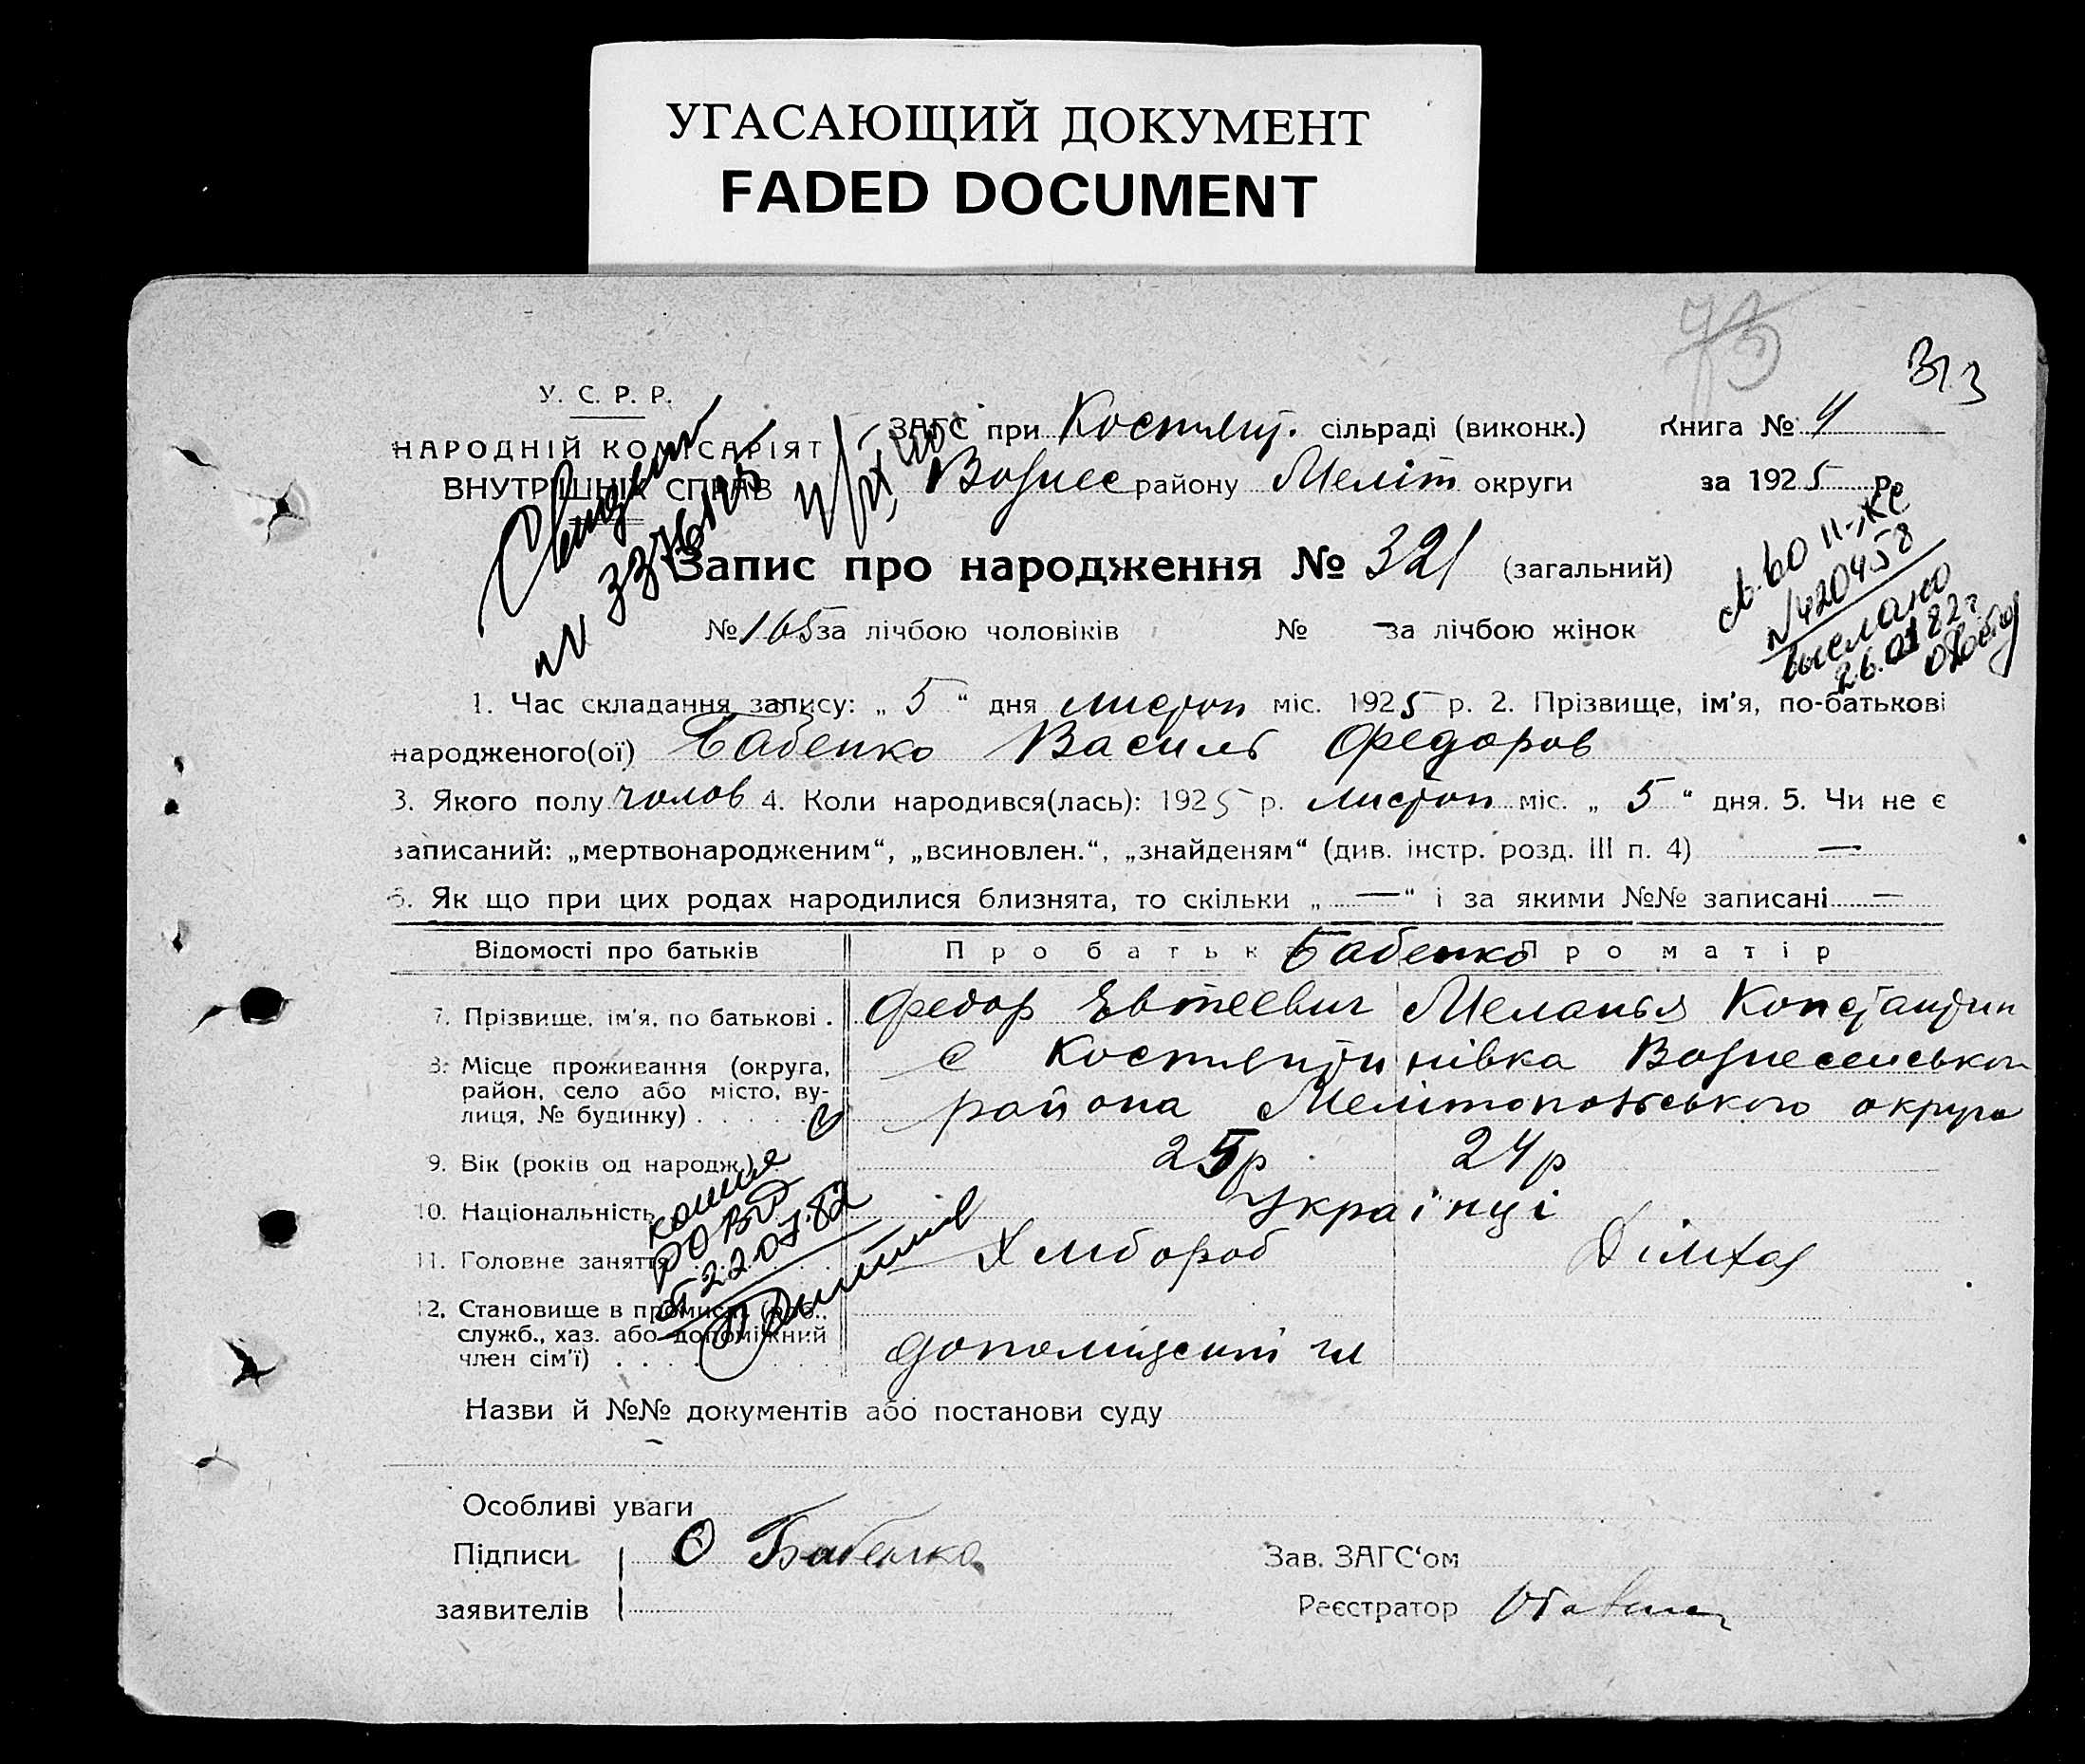 УГАСАЮЩИЙ ДОКУМЕНТ
FADED DOCUMENT
313
У. С. Р. Р.
НАРОДНІЙ КОМІСАРІЯТ
ВНУТРІШНІХ СПРАВ
ЗАГС при Костянт. сільраді (виконк.) Книга № 4
Вознес району Меліт округи за 1925 р.
Запис про народження № 321 (загальний)
№ 165 за лічбою чоловіків № — за лічбою жінок
св-во II-ЖС
№420458
выслано
26.01 82г
1. Час складання запису: „ 5 “ дня листоп міс. 1925 р. 2. Прізвище, ім'я, по-батькові
народженого(ої) Бабенко Василь Федоров
3. Якого полу чолов 4. Коли народився(лась): 1925 р. листоп міс. „ 5 “ дня. 5. Чи не є
записаний: „мертвонародженим“, „всиновлен.“, „знайденям“ (див. інстр. розд. III п. 4) —
6. Як що при цих родах народилися близнята, то скільки „ — “ і за якими №№ записані —
Відомості про батьків Про батьк Бабенко Про матір
7. Прізвище, ім'я, по батькові . Федор Евтеевич Меланья Константин
8. Місце проживання (округа, с Костянтинівка Вознесенського
район, село або місто, ву-
лиця, № будинку) . . . . района Мелітопольського округа
9. Вік (років од народж.) 25р 24р
10. Національність українці
11. Головне заняття Хлібороб Дімхаз
12. Становище в промислі (роб.,
служб., хаз. або допоміжний
член сім'ї) . . . .
копия
РОВД
22.01.82
Назви й №№ документів або постанови суду
Особливі уваги
Підписи Ф Бабенко Зав. ЗАГС‘ом
заявителів Реєстратор